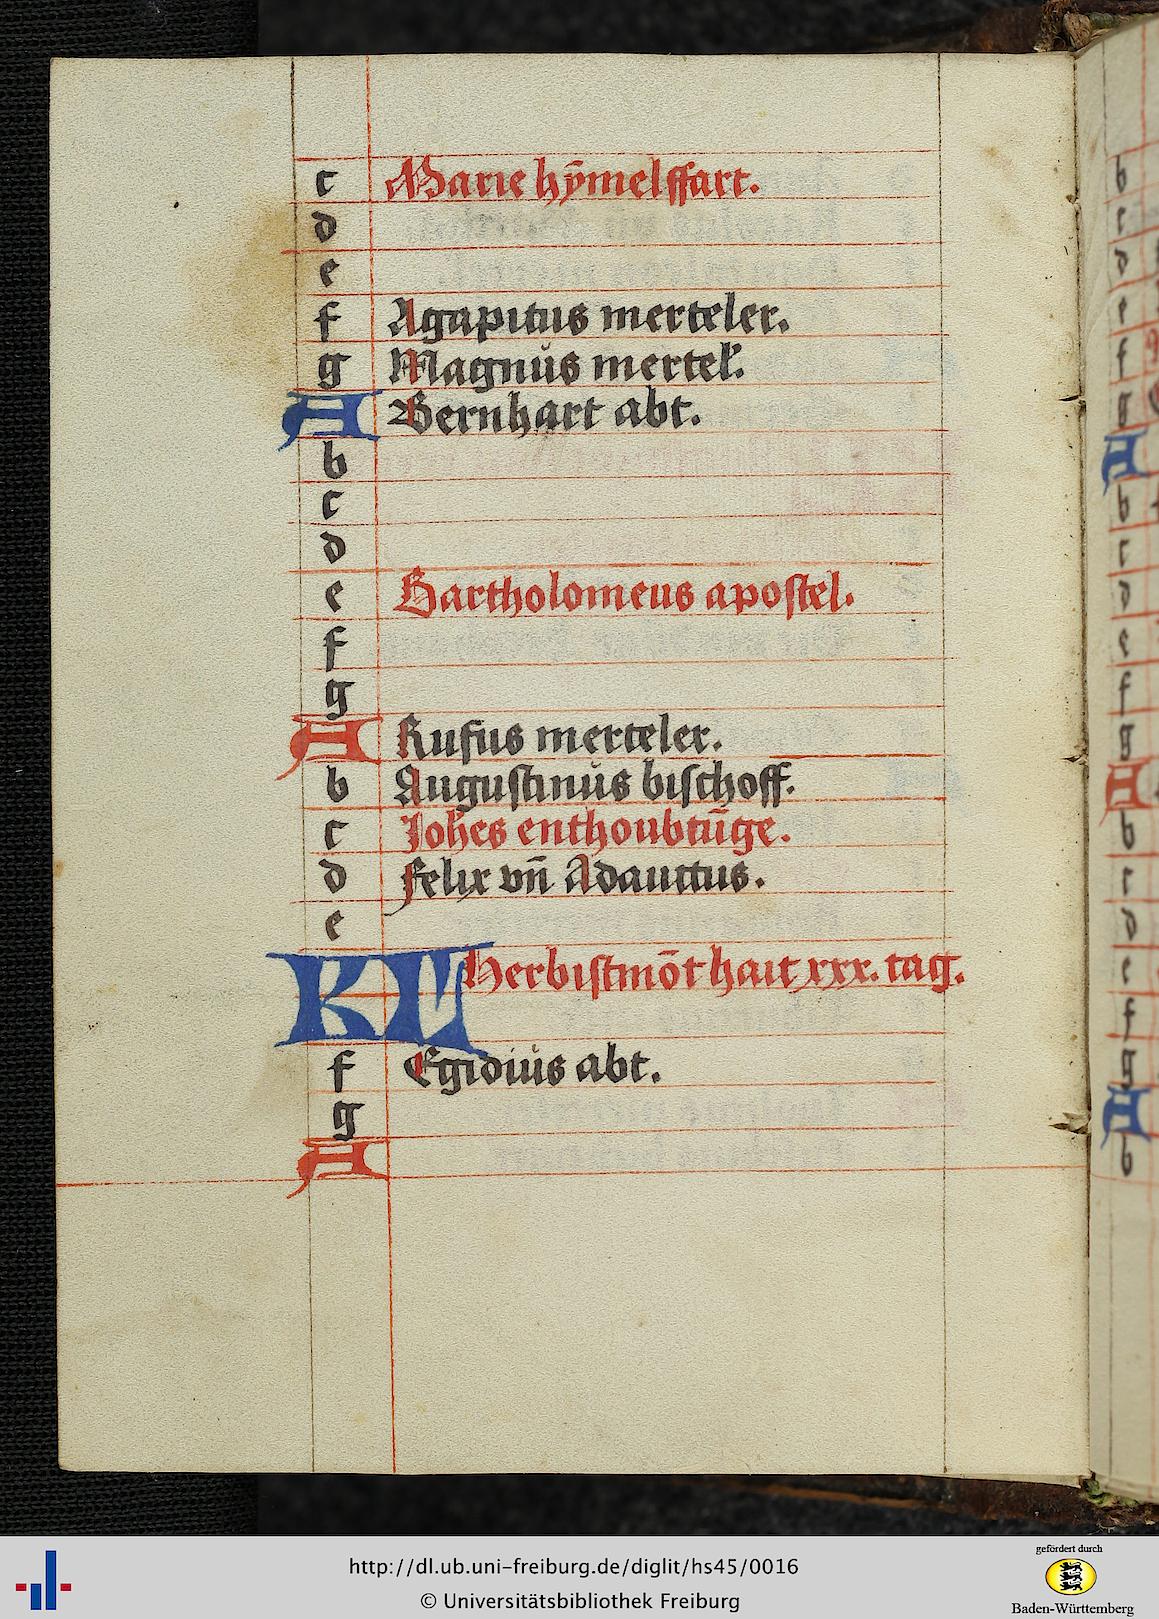 c Marie hȳmelffart.
d
e
f Agapitus merteler.
g Magnůs mertel'.
A Bernhart abt.
b
c
d
e Bartholomeus apostel.
f
g
A Rufus merteler.
b Augustinůs bischoff.
c Joh̄es enthoubtūge.
d Felix vn̄ Adauctus.
e
KL Herbistmōt hait xxx. tag.
f Egidiůs abt.
g
A
b
c
d
e
f
g
A
b
c
d
e
f
g
A
b
c
d
e
f
g
A
b
http://dl.ub.uni-freiburg.de/diglit/hs45/0016
© Universitätsbibliothek Freiburg
gefördert durch
Baden-Württemberg